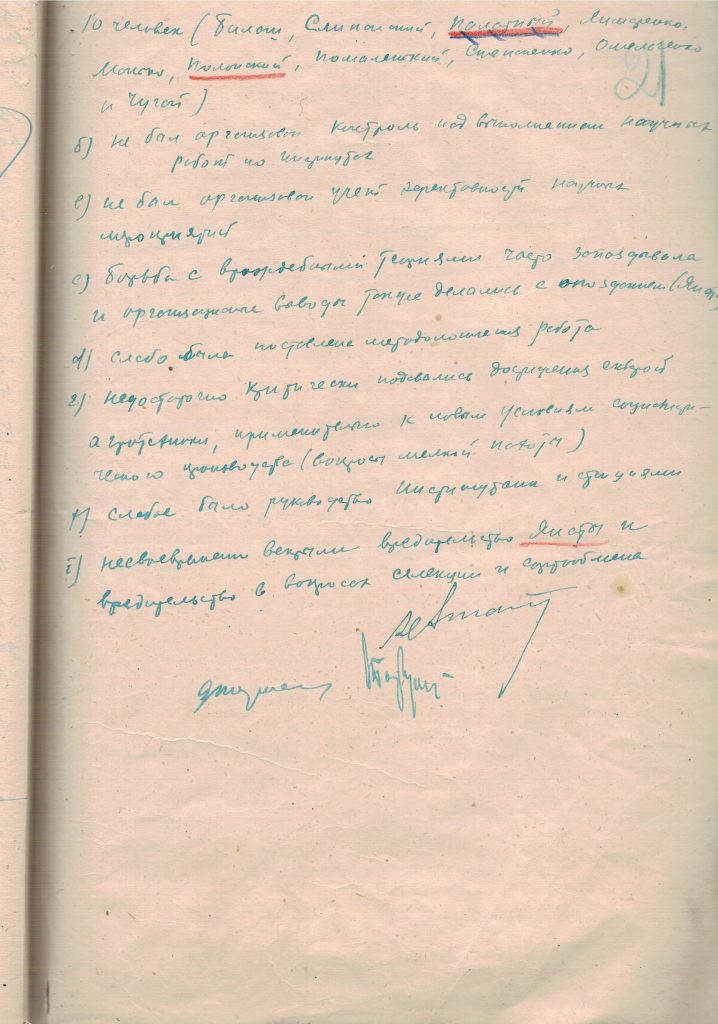 10 человек (Билаш, Слипанский, Палатный, Лимаренко,
Манько, Полонский, Помалецкий, Степаненко, Омельченко
21
и Чугай)
б) не был организован контроль над выполнением научных
работ по институтах
в) не был организован учет эффективности научных
мероприятий
с) борьба с враждебными теориями часто запаздывала
и организационные выводы также делались с опозданием (Янст)
d) слабо была поставлена методологическая работа
е) недостаточно критически подавались достижения
агротехники, применительно к новым условиям социалисти-
ческого производства (вопросы мелкой пахоты)
f) слабое было руководство институтами и станциями
i) несвоевременно вскрыли вредительство Янаты и
вредительство в вопросах селекции и сортообмена